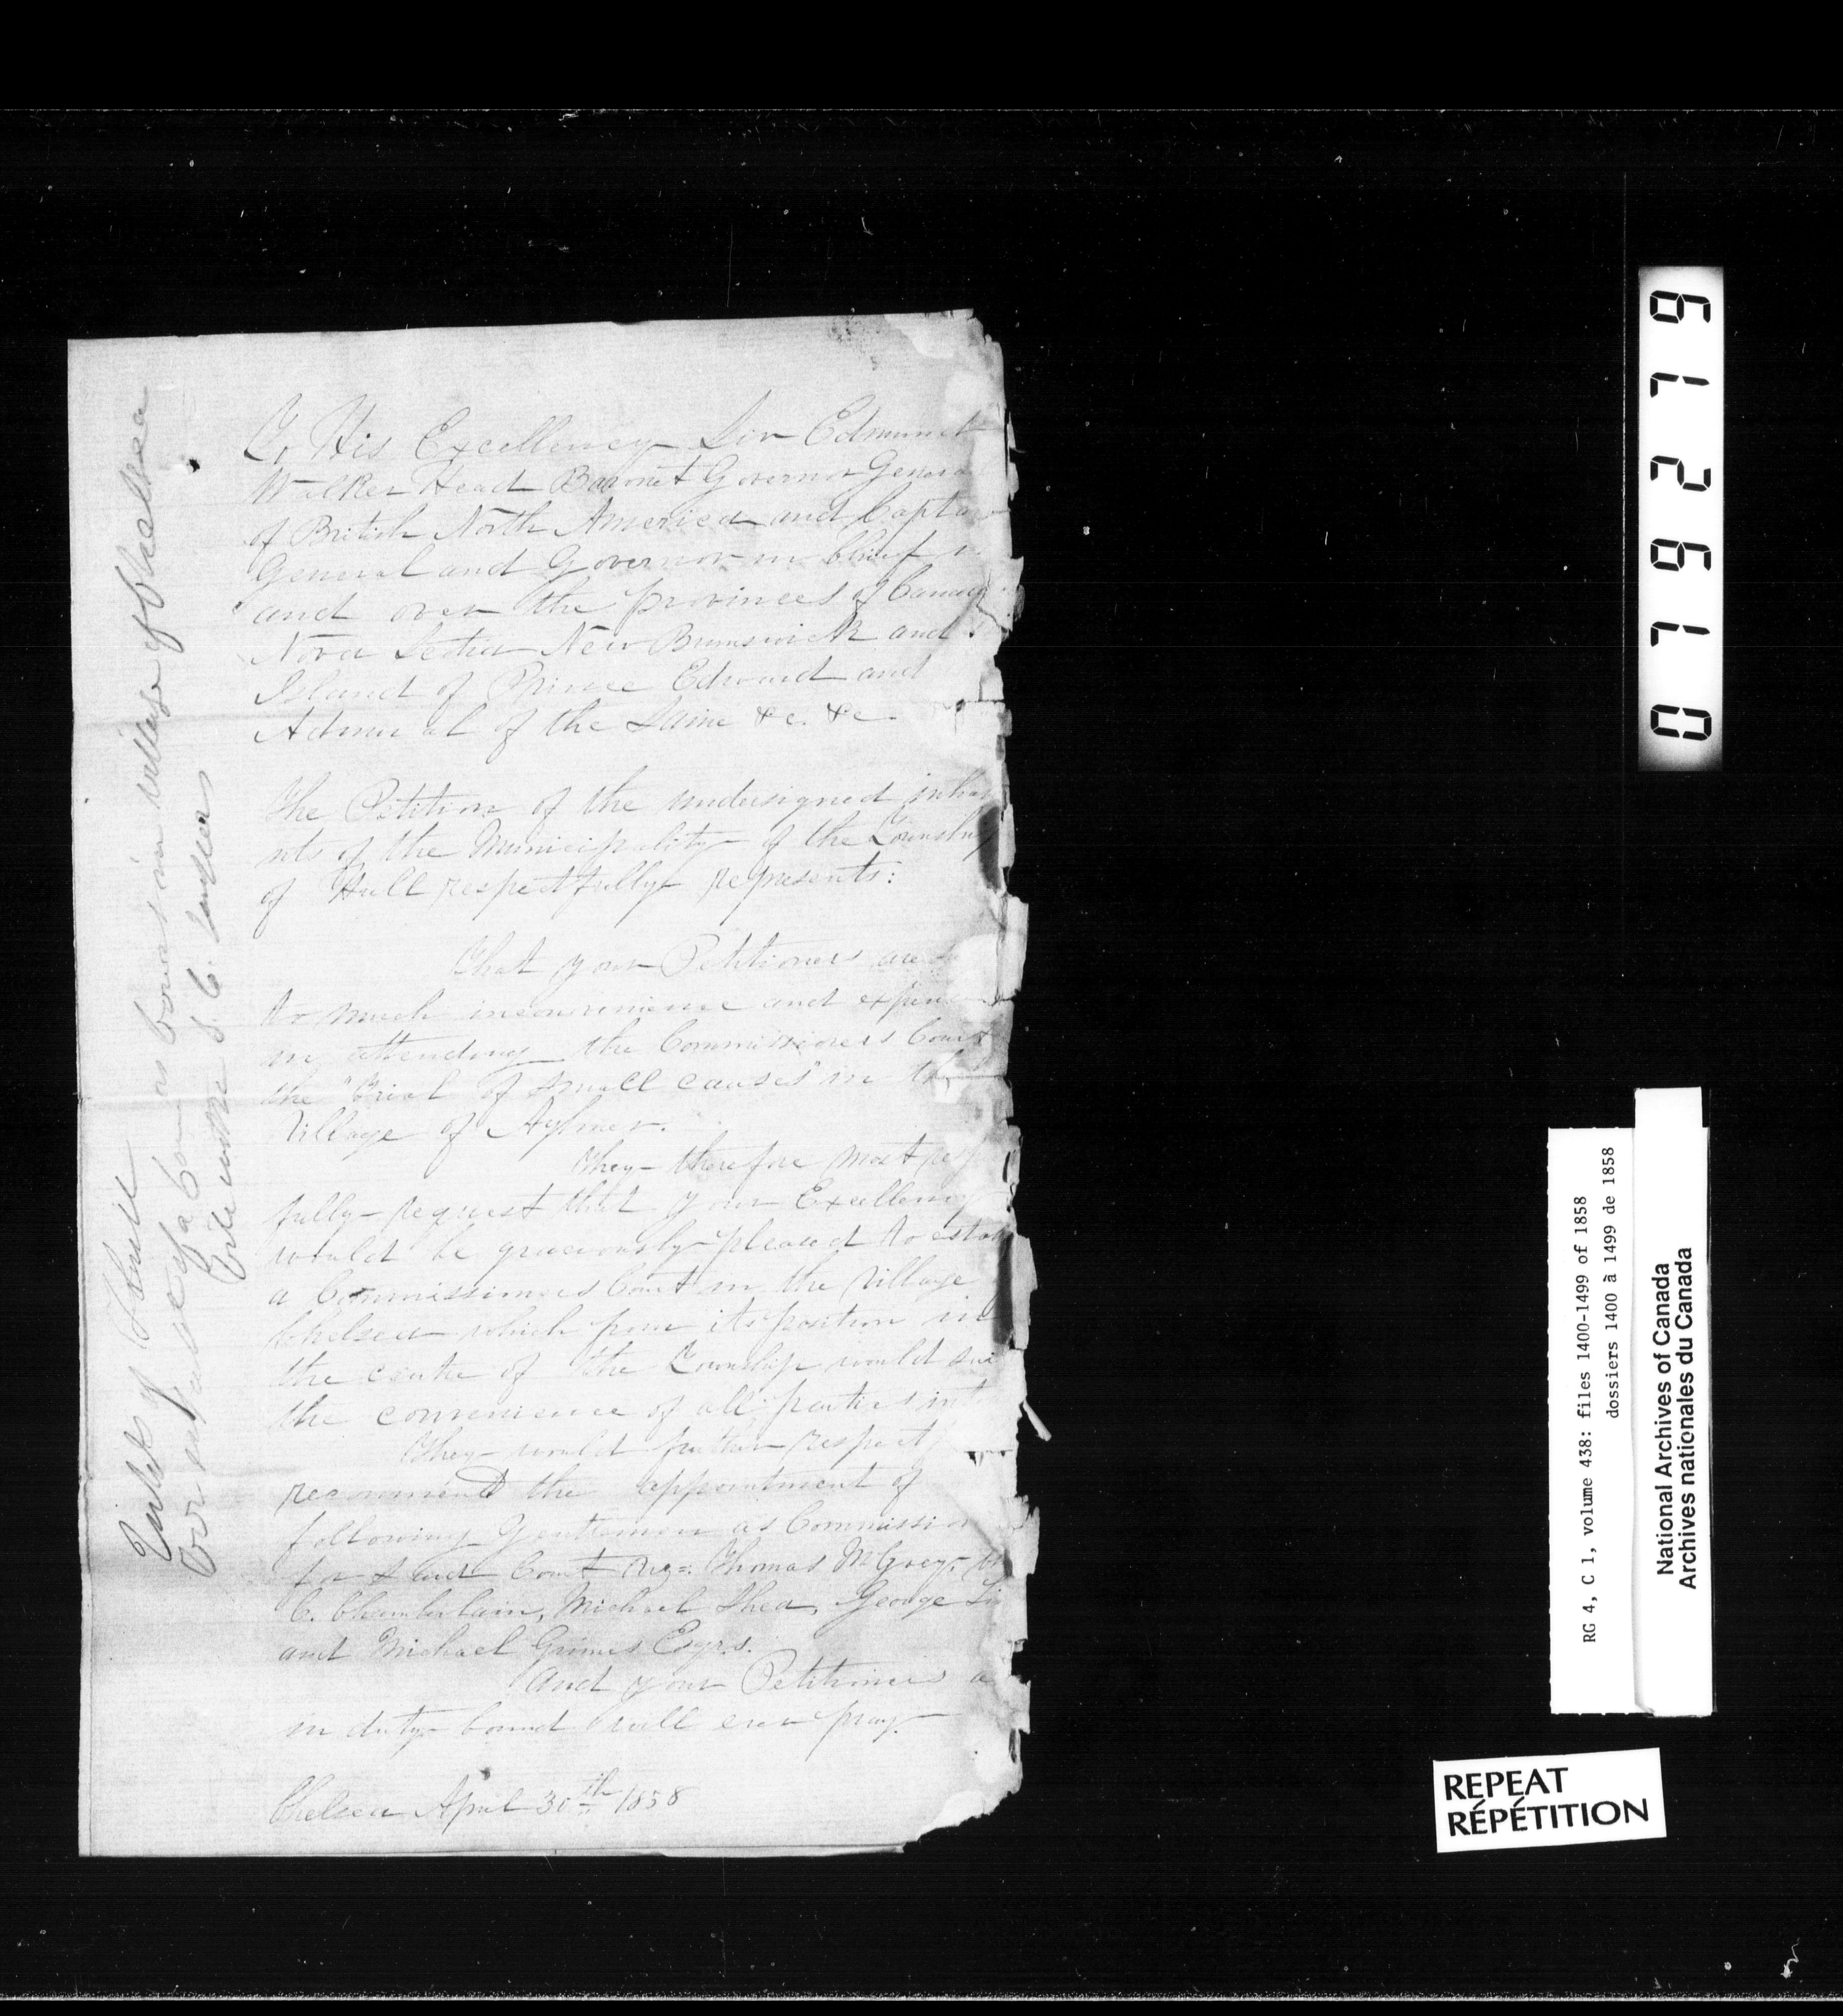 To His Excellency Sir Edmund
Walker Head Baronet Governor General
of British North America and Captain
General and Governor in Chief in
and over the provinces of Canada
Nova Scotia New Brunswick and
Island of Prince Edward and
Admiral of the Same &c. &c.
The Petition of the undersigned inha
nts of the Municipality of the Township
of Hull respectfully represents:
That your Petitioners are
to much inconvenience and expen
in attending the Commissioners Court
the "Trial of small causes" in the
Village of Aylmer.
They therefore most resp
fully request that your Excellency
would be graciously pleased to estab
a Commissioners Court in the Village
Chelsea which from its position in
the centre of the Township would sui
the convenience of all parties int
They would further respectf
recommend the appointment of
following Gentlemen as Commission
for said Court viz: Thomas McGoey,
C. Chamberlain, Michael Shea, George
and Michael Grimes Esqrs.
And your Petitioners a
in duty bound will ever pray.
Chelsea April 30th 1858
of Hull
of a Com in village of Chelsea
079279
RG 4, C 1, volume 438: files 1400-1499 of 1858
dossiers 1400 à 1499 de 1858
National Archives of Canada
Archives nationales du Canada
REPEAT
RÉPÉTITION